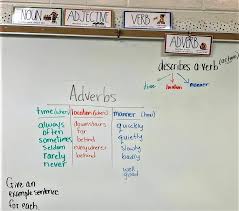 NOUN
ADJECTIVE
VERB
ADVERB
describes a verb (action)
time location manner
Adverbs
time (when) location (where) manner (how)
always downstairs quickly
often far quietly
sometimes behind slowly
seldom everywhere badly
rarely behind well
never good
Give an
example sentence
for each